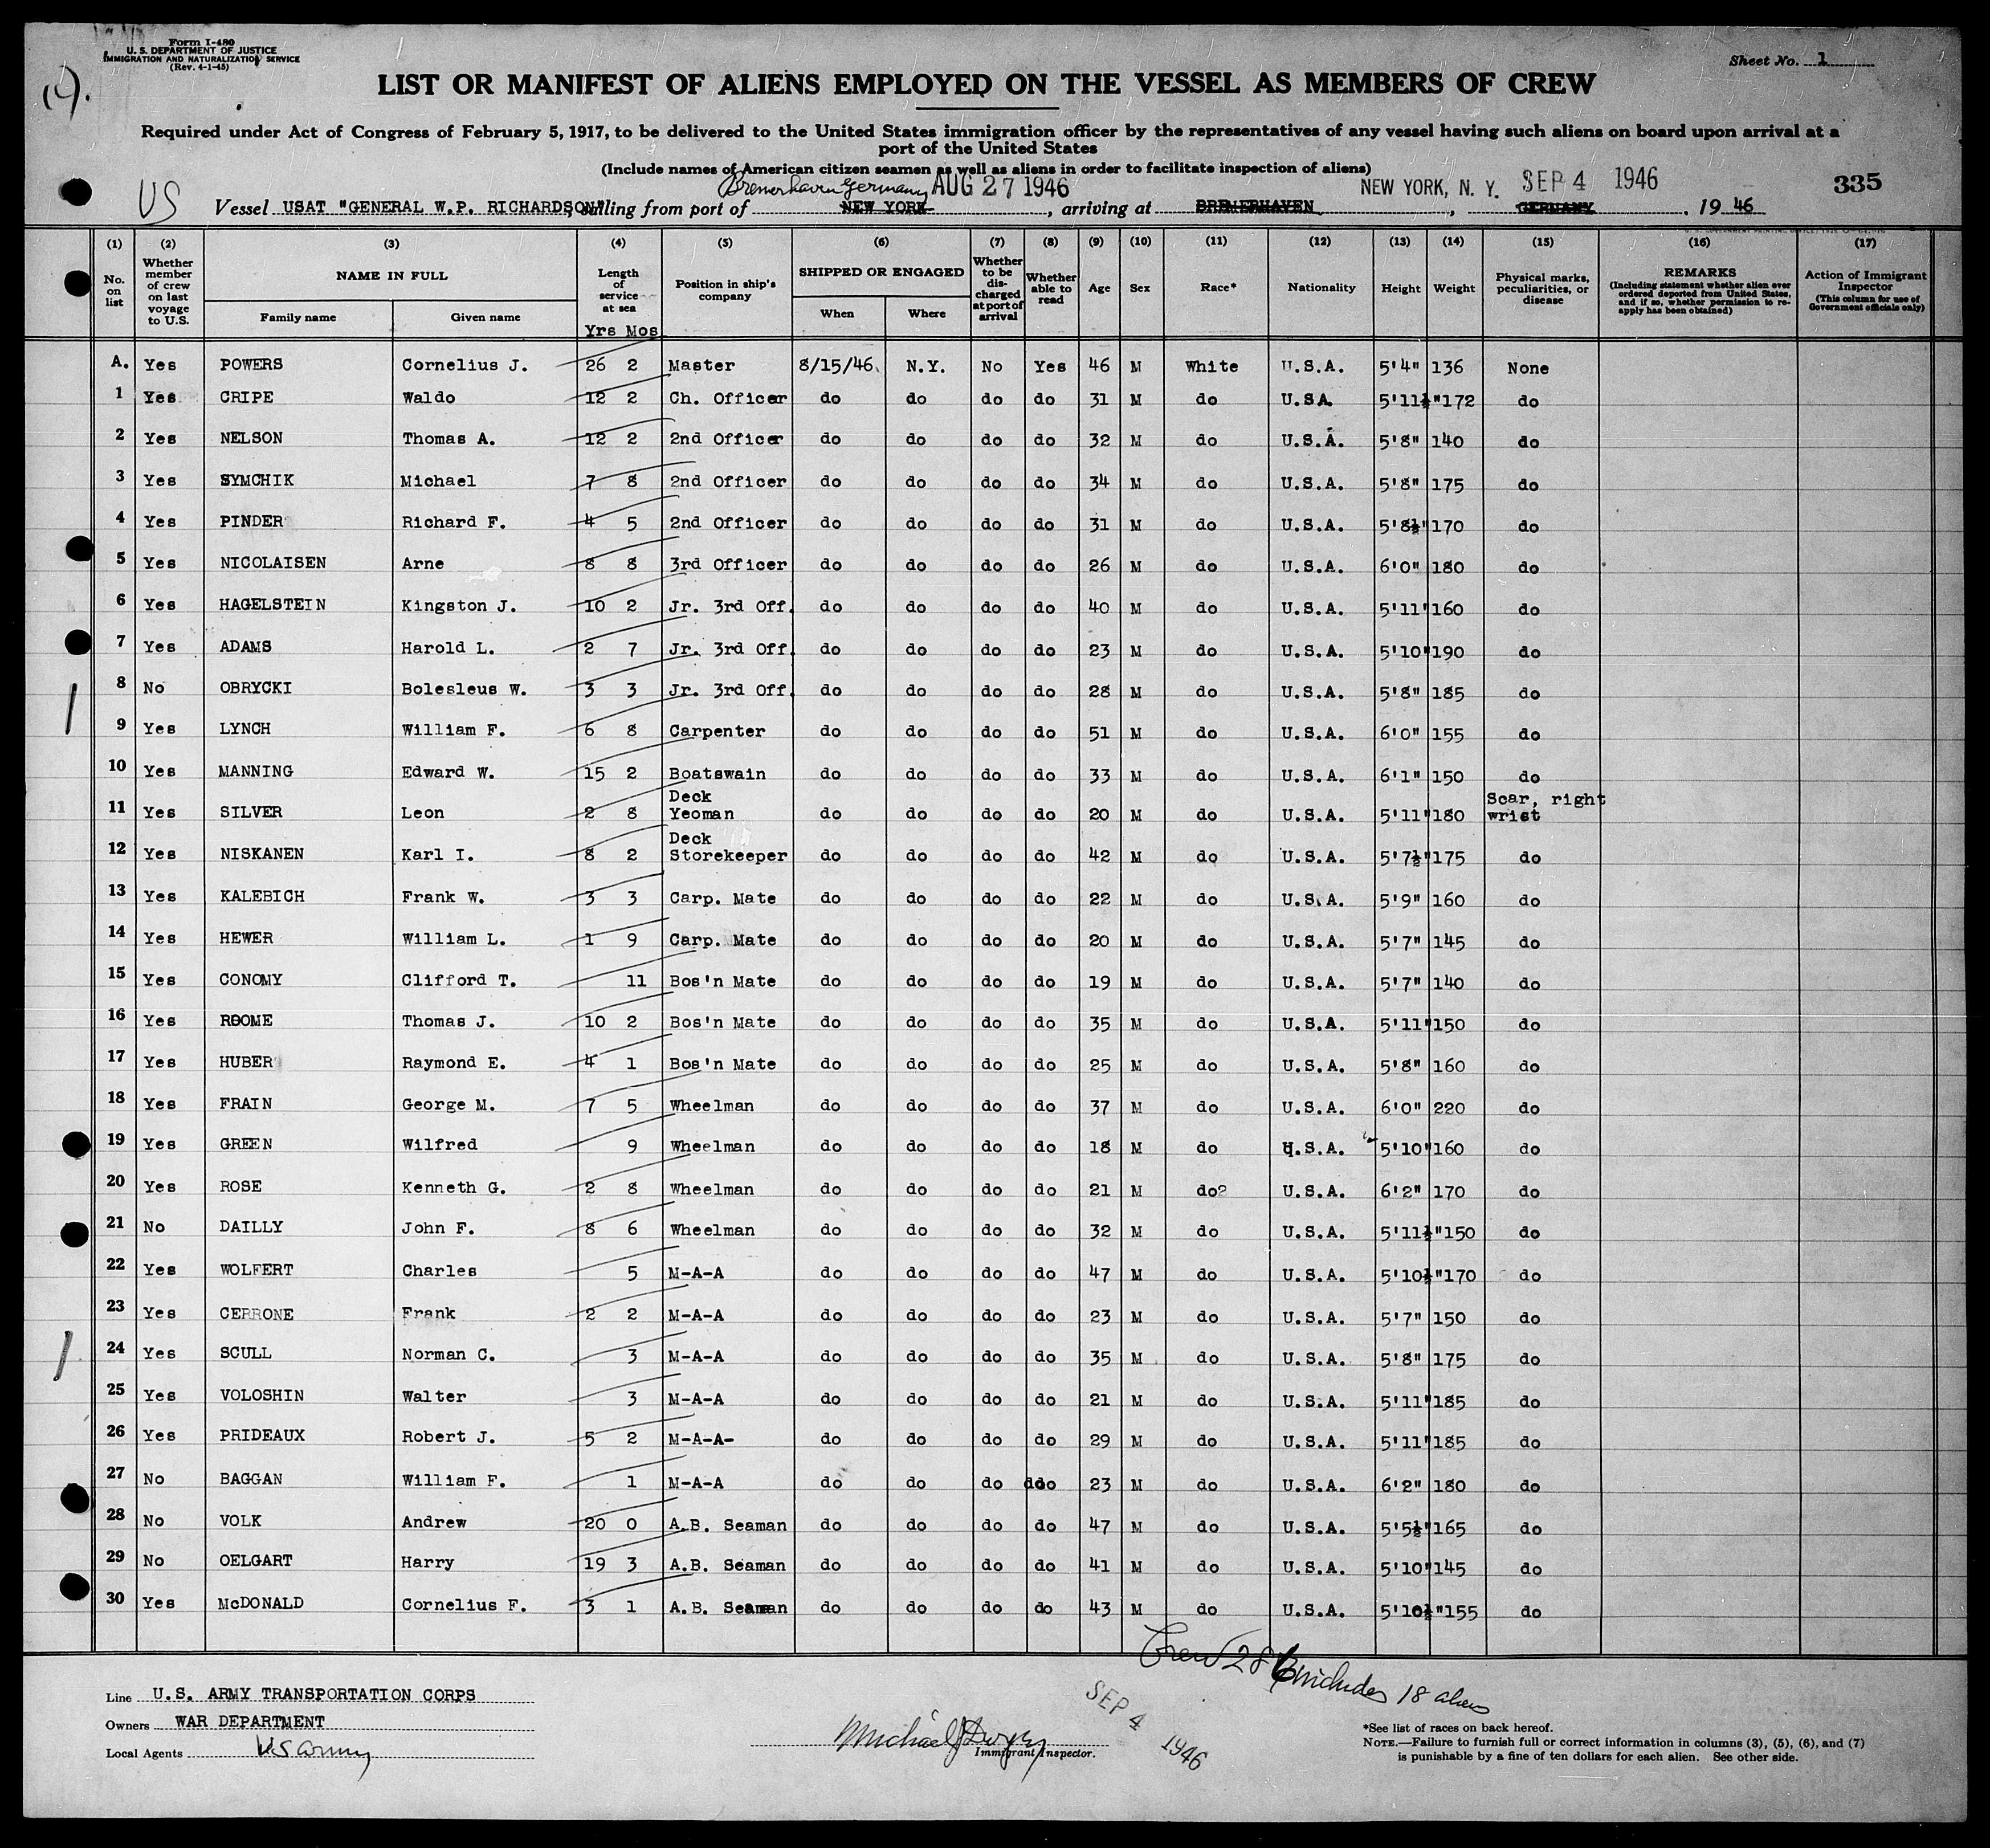 Form I-480
U. S. DEPARTMENT OF JUSTICE
IMMIGRATION AND NATURALIZATION SERVICE
(Rev. 4-1-45)
Sheet No. 1
LIST OR MANIFEST OF ALIENS EMPLOYED ON THE VESSEL AS MEMBERS OF CREW
Required under Act of Congress of February 5, 1917, to be delivered to the United States immigration officer by the representatives of any vessel having such aliens on board upon arrival at a
port of the United States
(Include names of American citizen seamen as well as aliens in order to facilitate inspection of aliens)
Bremerhaven Germany AUG 27 1946 NEW YORK, N. Y. SEP 4 1946 335
US Vessel USAT "GENERAL W.P. RICHARDSON" sailing from port of NEW YORK, arriving at BREMERHAVEN, GERMANY, 19 46
(1) (2) (3) (4) (5) (6) (7) (8) (9) (10) (11) (12) (13) (14) (15) (16) (17)
No. on list Whether member of crew on last voyage to U.S. NAME IN FULL Family name Given name Length of service at sea Yrs Mos Position in ship's company SHIPPED OR ENGAGED When Where Whether to be discharged at port of arrival Whether able to read Age Sex Race* Nationality Height Weight Physical marks, peculiarities, or disease REMARKS (Including statement whether alien ever ordered deported from United States, and if so, whether permission to reapply has been obtained) Action of Immigrant Inspector (This column for use of Government officials only)
A. Yes POWERS Cornelius J. 26 2 Master 8/15/46 N.Y. No Yes 46 M White U.S.A. 5'4" 136 None
1 Yes CRIPE Waldo 12 2 Ch. Officer do do do do 31 M do U.SA. 5'11½" 172 do
2 Yes NELSON Thomas A. 12 2 2nd Officer do do do do 32 M do U.S.A. 5'8" 140 do
3 Yes SYMCHIK Michael 7 8 2nd Officer do do do do 34 M do U.S.A. 5'8" 175 do
4 Yes PINDER Richard F. 4 5 2nd Officer do do do do 31 M do U.S.A. 5'8½" 170 do
5 Yes NICOLAISEN Arne 8 8 3rd Officer do do do do 26 M do U.S.A. 6'0" 180 do
6 Yes HAGELSTEIN Kingston J. 10 2 Jr. 3rd Off. do do do do 40 M do U.S.A. 5'11" 160 do
7 Yes ADAMS Harold L. 2 7 Jr. 3rd Off. do do do do 23 M do U.S.A. 5'10" 190 do
8 No OBRYCKI Bolesleus W. 3 3 Jr. 3rd Off. do do do do 28 M do U.S.A. 5'8" 185 do
9 Yes LYNCH William F. 6 8 Carpenter do do do do 51 M do U.S.A. 6'0" 155 do
10 Yes MANNING Edward W. 15 2 Boatswain do do do do 33 M do U.S.A. 6'1" 150 do
11 Yes SILVER Leon 2 8 Deck Yeoman do do do do 20 M do U.S.A. 5'11" 180 Scar, right wrist
12 Yes NISKANEN Karl I. 8 2 Deck Storekeeper do do do do 42 M do U.S.A. 5'7½" 175 do
13 Yes KALEBICH Frank W. 3 3 Carp. Mate do do do do 22 M do U.S.A. 5'9" 160 do
14 Yes HEWER William L. 1 9 Carp. Mate do do do do 20 M do U.S.A. 5'7" 145 do
15 Yes CONOMY Clifford T. 11 Bos'n Mate do do do do 19 M do U.S.A. 5'7" 140 do
16 Yes ROOME Thomas J. 10 2 Bos'n Mate do do do do 35 M do U.S.A. 5'11" 150 do
17 Yes HUBER Raymond E. 4 1 Bos'n Mate do do do do 25 M do U.S.A. 5'8" 160 do
18 Yes FRAIN George M. 7 5 Wheelman do do do do 37 M do U.S.A. 6'0" 220 do
19 Yes GREEN Wilfred 9 Wheelman do do do do 18 M do U.S.A. 5'10" 160 do
20 Yes ROSE Kenneth G. 2 8 Wheelman do do do do 21 M do? U.S.A. 6'2" 170 do
21 No DAILLY John F. 8 6 Wheelman do do do do 32 M do U.S.A. 5'11½" 150 do
22 Yes WOLFERT Charles 5 M-A-A do do do do 47 M do U.S.A. 5'10½" 170 do
23 Yes CERRONE Frank 2 2 M-A-A do do do do 23 M do U.S.A. 5'7" 150 do
24 Yes SCULL Norman C. 3 M-A-A do do do do 35 M do U.S.A. 5'8" 175 do
25 Yes VOLOSHIN Walter 3 M-A-A do do do do 21 M do U.S.A. 5'11" 185 do
26 Yes PRIDEAUX Robert J. 5 2 M-A-A- do do do do 29 M do U.S.A. 5'11" 185 do
27 No BAGGAN William F. 1 M-A-A do do do do 23 M do U.S.A. 6'2" 180 do
28 No VOLK Andrew 20 0 A.B. Seaman do do do do 47 M do U.S.A. 5'5½" 165 do
29 No OELGART Harry 19 3 A.B. Seaman do do do do 41 M do U.S.A. 5'10" 145 do
30 Yes McDONALD Cornelius F. 3 1 A.B. Seaman do do do do 43 M do U.S.A. 5'10½" 155 do
Crew 286 includes 18 aliens
Line U.S. ARMY TRANSPORTATION CORPS
Owners WAR DEPARTMENT
Local Agents US Army
Michael J
Immigrant Inspector.
SEP 4 1946
*See list of races on back hereof.
NOTE.—Failure to furnish full or correct information in columns (3), (5), (6), and (7)
is punishable by a fine of ten dollars for each alien. See other side.